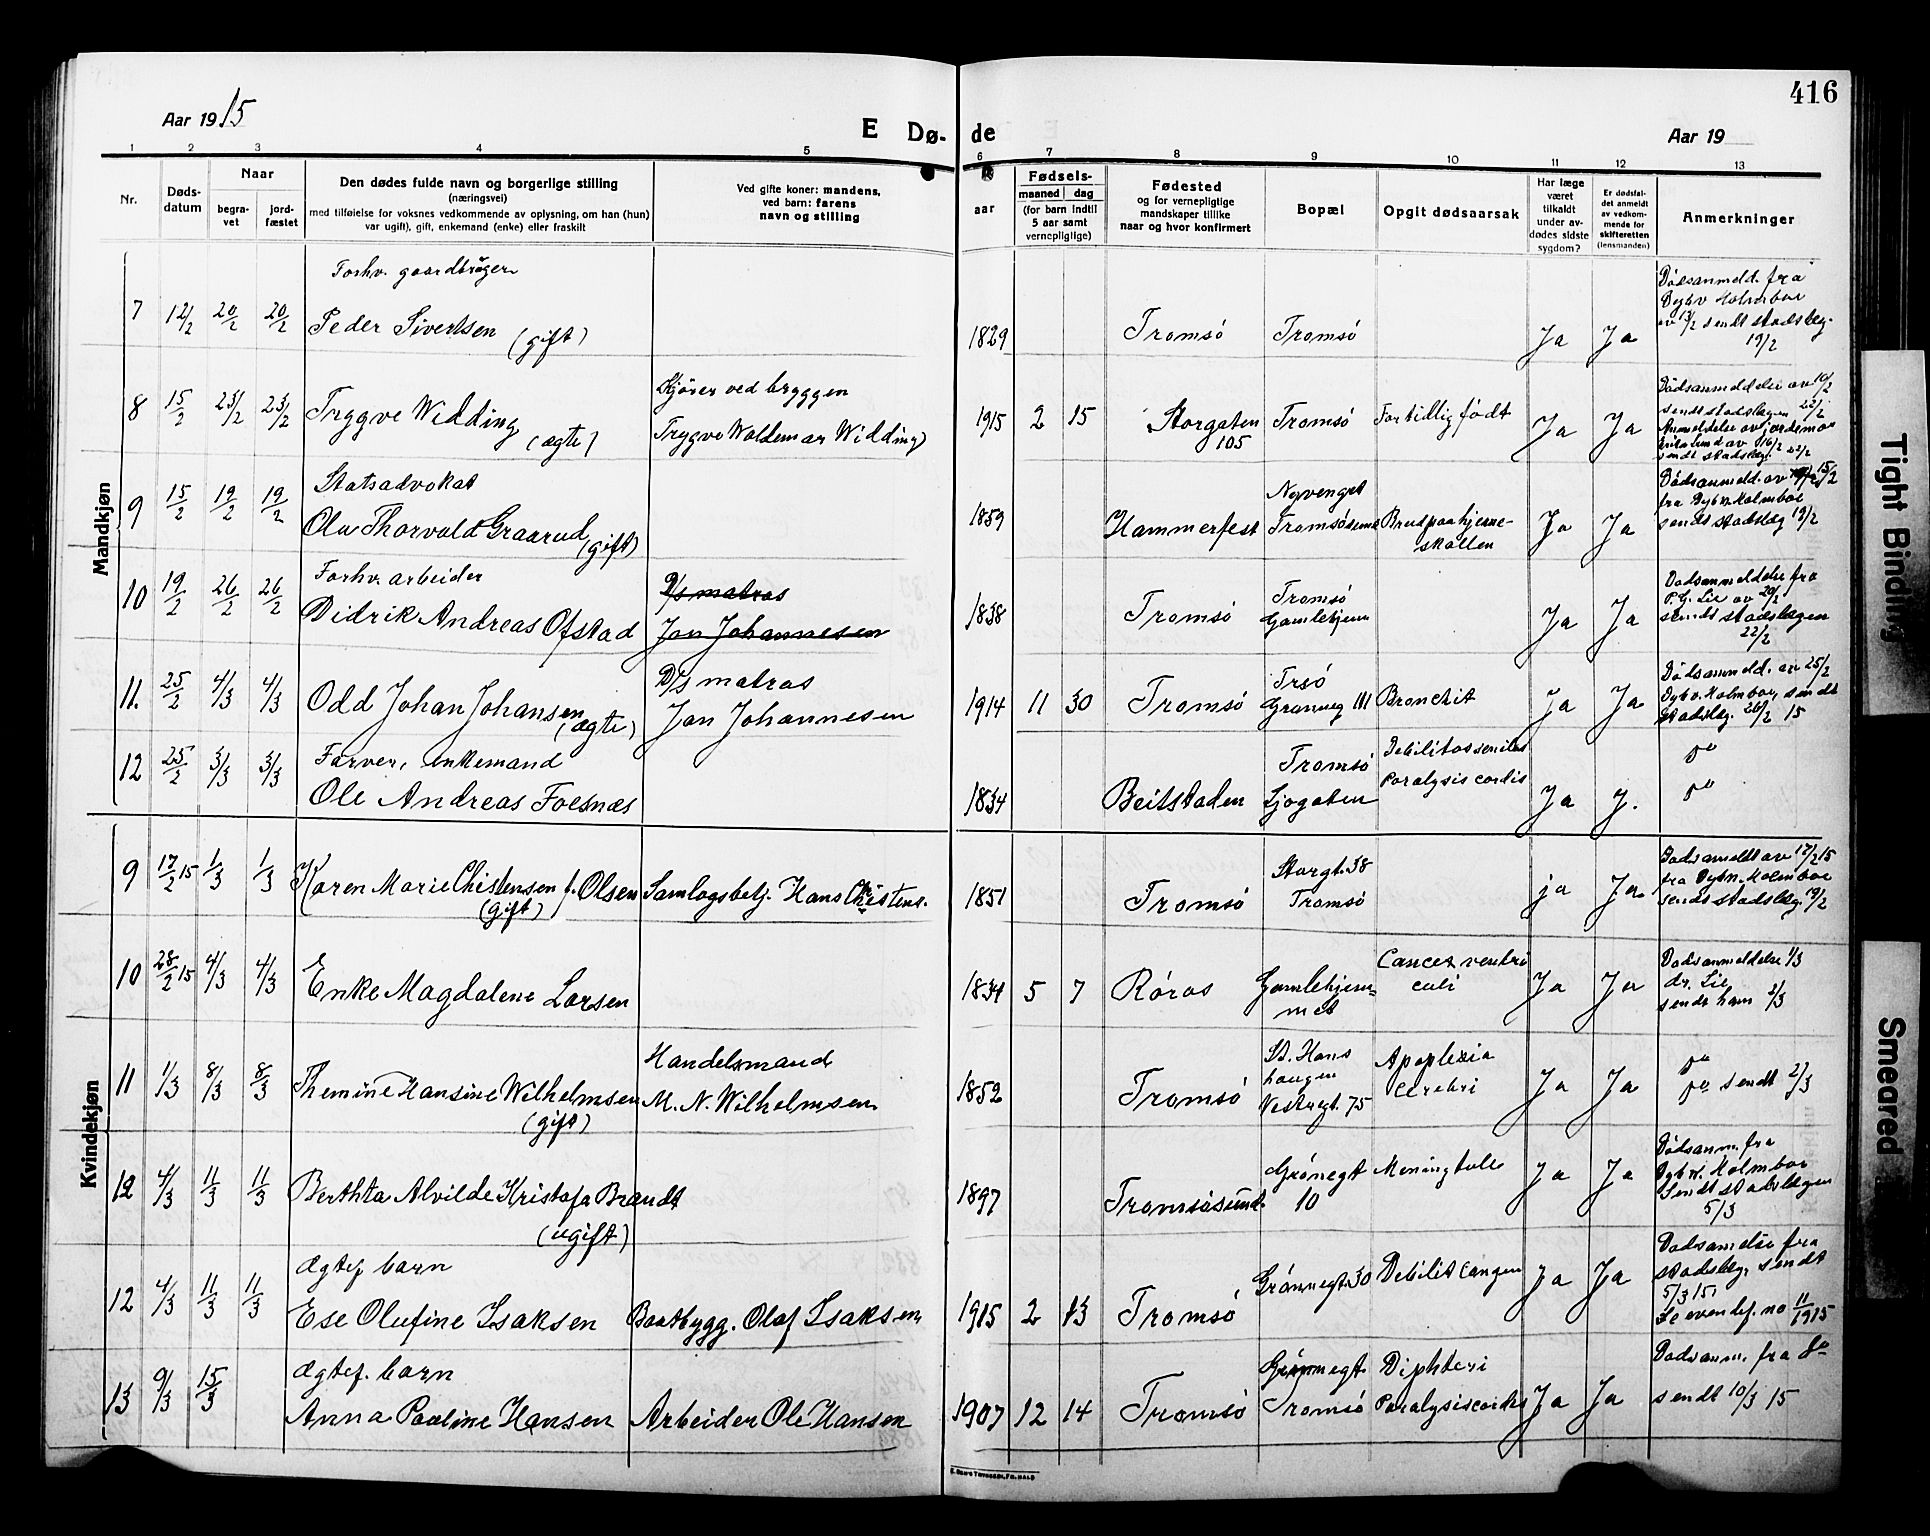 416
Aar 1915
E Dø-
de
Aar 19
1 2 3 4 5 6 7 8 9 10 11 12 13
Nr.
Døds-
datum
Naar
begra-
vet
jord-
fæstet
Den dødes fulde navn og borgerlige stilling
(næringsvei)
med tilføielse for voksnes vedkommende av oplysning, om han (hun)
var ugift), gift, enkemand (enke) eller fraskilt
Ved gifte koner: mandens,
ved barn: farens
navn og stilling
aar
Fødsels-
maaned dag
(for barn indtil
5 aar samt
vernepligtige)
Fødested
og for vernepligtige
mandskaper tillike
naar og hvor konfirmert
Bopæl
Opgit dødsaarsak
Har læge
været
tilkaldt
under av-
dødes sidste
sygdom?
Er dødsfal-
det anmeldt
av vedkom-
mende for
skifteretten
(lensmanden)
Anmerkninger
Mandkjøn
Forhv. gaardbruger
7 12/2 20/2 20/2 Peder Sivertsen (gift) 1829 Tromsø Tromsø Ja Ja
Dødsanmeld. fra
Dybv Holmboe
av 13/2 sendt stadslæg.
19/2
Kjører ved bryggen
8 15/2 23/2 23/2 Tryggve Widding (ægte) Trygve Waldemar Widding 1915 2 15 Storgaten 105 Tromsø For tidlig født Ja Ja
Dødsanmeldelse av 19/2
sendt stadslægen 22/2
Anmeldelse av jordemor
av 16/2
sendt stadslæg. 22/2
Statsadvokat
9 15/2 19/2 19/2 Olu Thorvald Graarud (gift) 1859 Hammerfest Nyvenget Tromsøsund Brud paa hjerne-
skallen Ja Ja
Dødsanmeld. av 15/2
fra Dybv. Holmboe
sendt stadslæg 19/2
Forhv. arbeider
10 19/2 26/2 26/2 Didrik Andreas Ofstad D/s matros
Jan Johannesen 1838 Tromsø Tromsø
Gamlehjem Ja Ja
Dødsanmeldelse fra
P. G. Lie av 20/2
sendt stadslægen
22/2
11. 25/2 4/3 4/3 Odd Johan Johansen (ægte) D/s matros
Jan Johannesen 1914 11 30 Tromsø Trsø
Grønneg 111 Bronchit Ja Ja
Dødsanmeld. av 25/2
Dybv. Holmboe, sendt
Stadslæg. 26/2 15
Farver, enkemand
12 25/2 3/3 3/3 Ole Andreas Foesnæs 1834 Beitstaden Tromsø
Sjøgaten Debilitas senilis
Paralysis cordis Ja J.
do
do
Kvindekjøn
9 17/2 15 1/3 1/3 Karen Marie Christensen f. Olsen
(gift) Samlagsbetj. Hans Christens. 1851 Tromsø Storgt. 38
Tromsø ja Ja
Dødsanmeldt av 17/2 15
fra Dybv. Holmboe
sendt stadslæg. 19/2
10 28/2 15 4/3 4/3 Enke Magdalene Larsen 1834 5 7 Røros Gamlehjem-
met Cancer ventri
culi Ja Ja
Dødsanmeldelse 1/3
dr. Lie
sendt ham 2/3
Handelsmand
11 1/3 8/3 8/3 Themine Hansine Wilhelmsen
(gift) M. N. Wilhelmsen 1852 Tromsø St. Hans
haugen
Vestregt. 75 Apoplexia
Cerebri Ja Ja
do
do sendt 2/3
12 4/3 11/3 11/3 Berthta Alvilde Kristofa Brandt
(ugift) 1897 Tromsøsund. Grønegt
10 Mening tub. Ja Ja
Dødsanm. fra
Dybv. Holmboe
Sendt stadslægen
5/3
Ægtef. barn
12 4/3 11/3 11/3 Ese Olufine Isaksen Baatbygg. Olaf Isaksen 1915 2 13 Tromsø Grønnegt. 30 Debilit congen Ja Ja
Dødsanmelse fra
stadslæg. sendt
5/3 15.
Se levendef. no 11/1915
Ægtef. barn
13 9/3 15/3 Anna Pauline Hansen Arbeider Ole Hansen 1907 12 14 Tromsø Grønnegt
Tromsø Diphteri
Paralysis cordis Ja Ja
Dødsanm. fra do
sendt 10/3 15
Tight Binding
Smeared